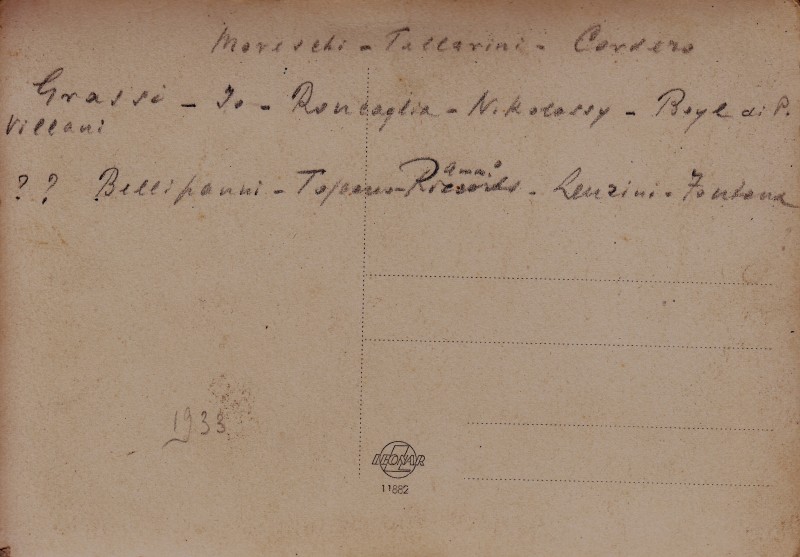 Moreschi - Tallarini - Cordero
Grassi - Io - Roncaglia - Nikolassy - Boyl di P.
Villani
? ? Bellipanni - - Riccardo - Lenzini - Fontana
1933
LEONAR
11882